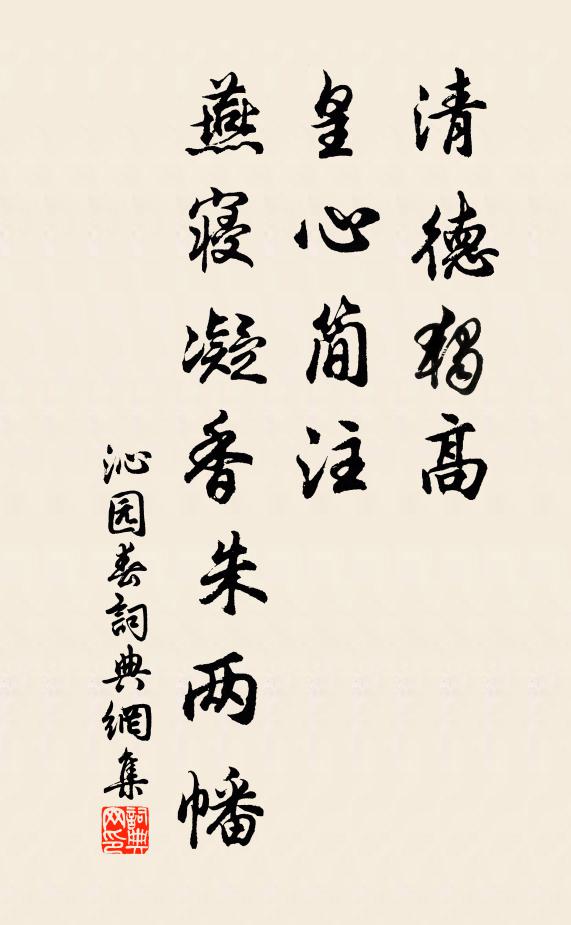 清德独高
皇心简注
燕寝凝香朱两幡
沁园春詞典網集
詞典
网印